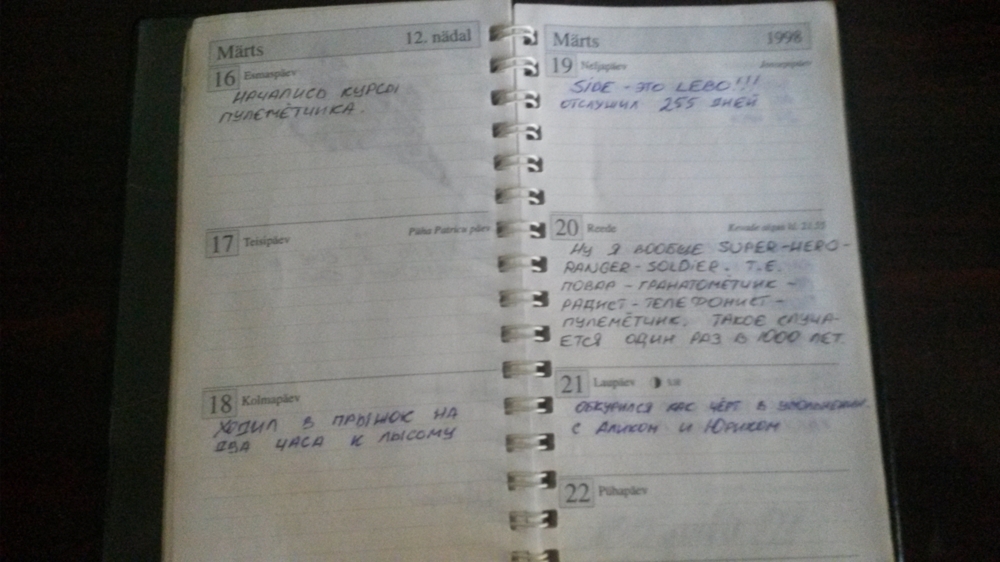 Märts 12. nädal
16 Esmaspäev
НАЧАЛИСЬ КУРСЫ
ПУЛЕМЁТЧИКА.
17 Teisipäev Püha Patricu päev
18 Kolmapäev
ХОДИЛ В ПРЫЖОК НА
ДВА ЧАСА К ЛЫСОМУ
Märts 1998
19 Neljapäev Joosepipäev
SIDE - ЭТО LEBO!!!
ОТСЛУЖИЛ 255 ДНЕЙ
20 Reede Kevade algus kl. 21.55
НУ Я ВООБЩЕ SUPER-HERO-
RANGER-SOLDIER. Т.Е.
ПОВАР - ГРАНАТОМЁТЧИК -
РАДИСТ - ТЕЛЕФОНИСТ -
ПУЛЕМЁТЧИК. ТАКОЕ СЛУЧА-
ЕТСЯ ОДИН РАЗ В 1000 ЛЕТ.
21 Laupäev
ОБКУРИЛСЯ КАК ЧЁРТ В
С АЛИКОМ И ЮРИКОМ
22 Pühapäev